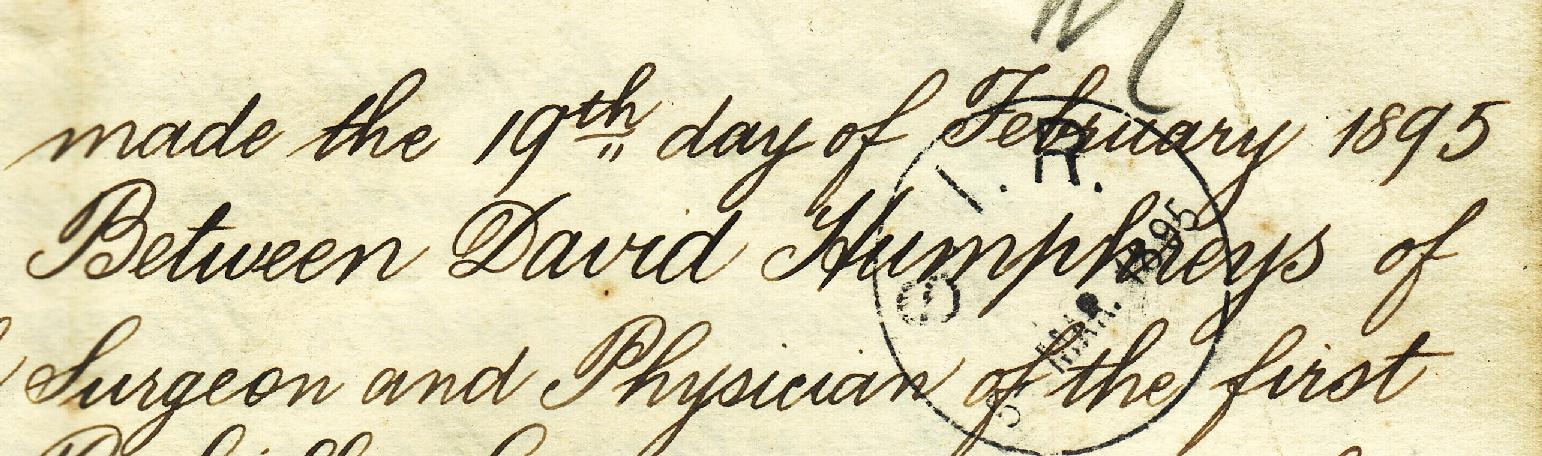 made the 19th day of February 1895
Between David Humphreys of
Surgeon and Physician of the first
I. R.
MAR. 1895